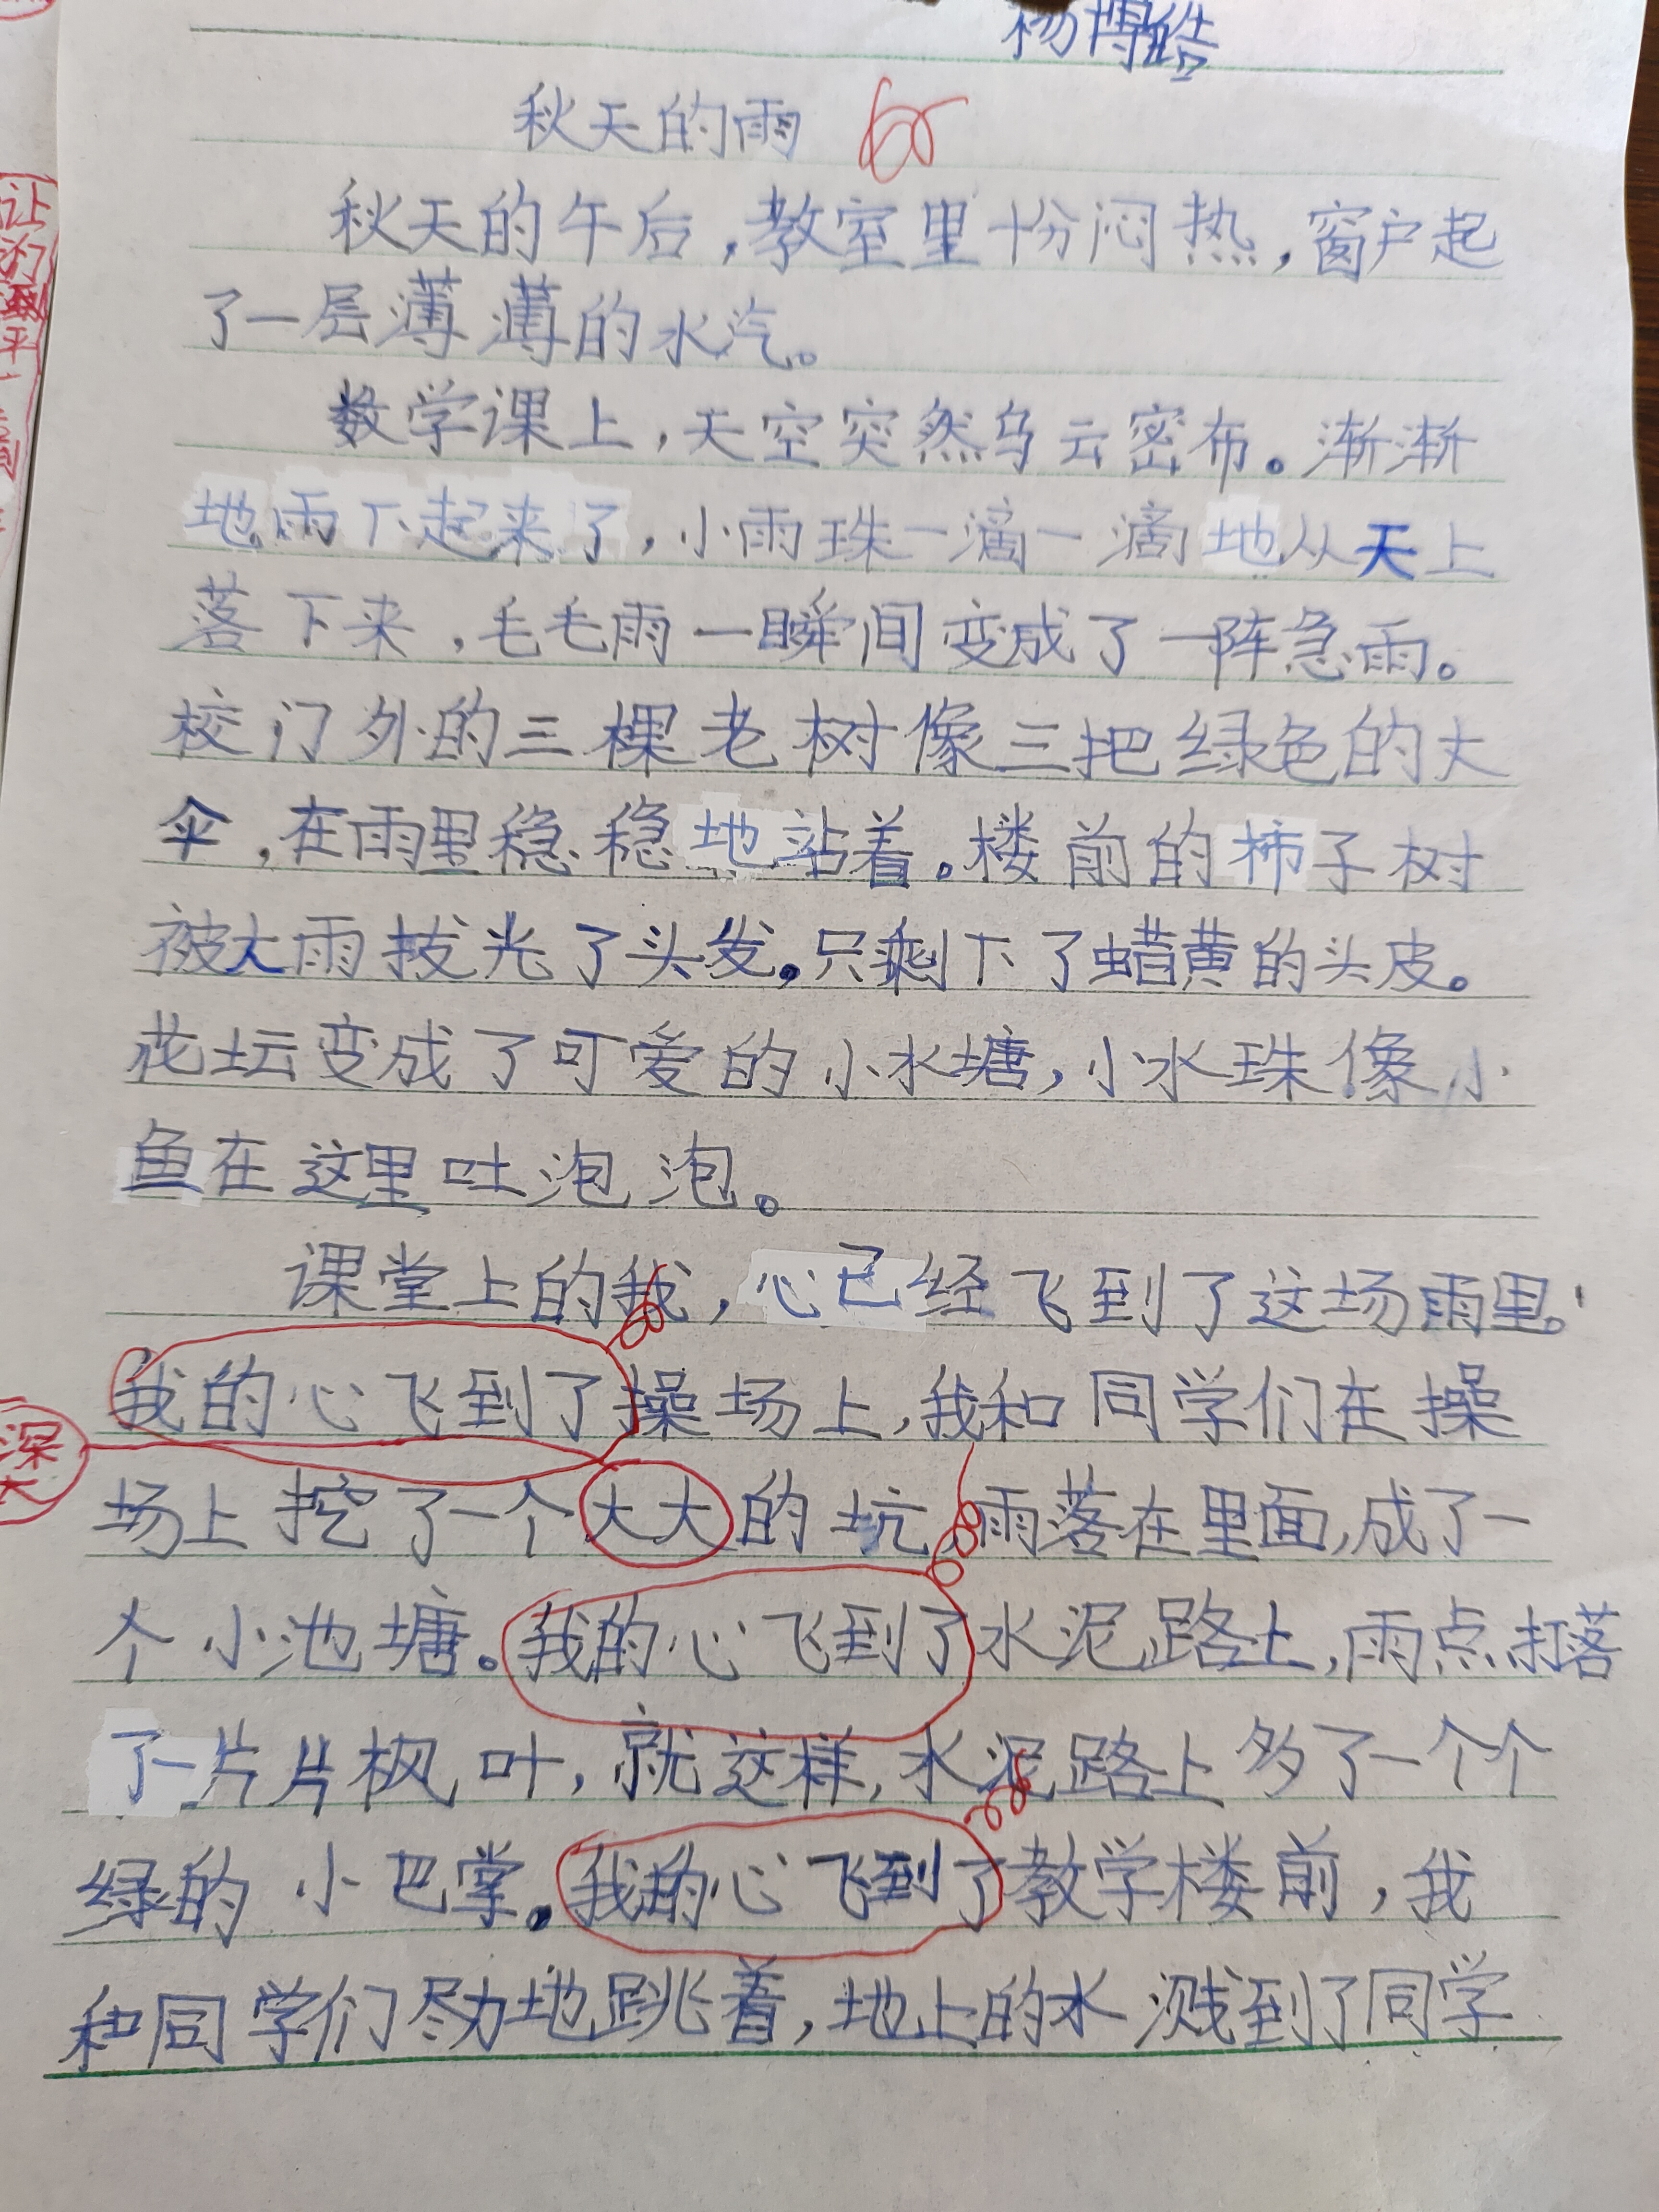 杨博皓
秋天的雨
秋天的午后,教室里十份闷热,窗户起
了一层薄薄的水汽。
数学课上,天空突然乌云密布。渐渐
地雨下起来了,小雨珠一滴一滴地从天上
落下来,毛毛雨一瞬间变成了一阵急雨。
校门外的三棵老树像三把绿色的大
伞,在雨里稳稳地站着。楼前的柿子树
被大雨拔光了头发,只剩下了蜡黄的头皮。
花坛变成了可爱的小水塘,小水珠像小
鱼在这里吐泡泡。
课堂上的我,心已经飞到了这场雨里。
我的心飞到了操场上,我和同学们在操
深
大
场上挖了一个大大的坑,雨落在里面,成了一
个小池塘。我的心飞到了水泥路上,雨点打落
了一片片枫叶,就这样,水泥路上多了一个个
绿的小巴掌。我的心飞到了教学楼前,我
和同学们尽力地跳着,地上的水溅到了同学